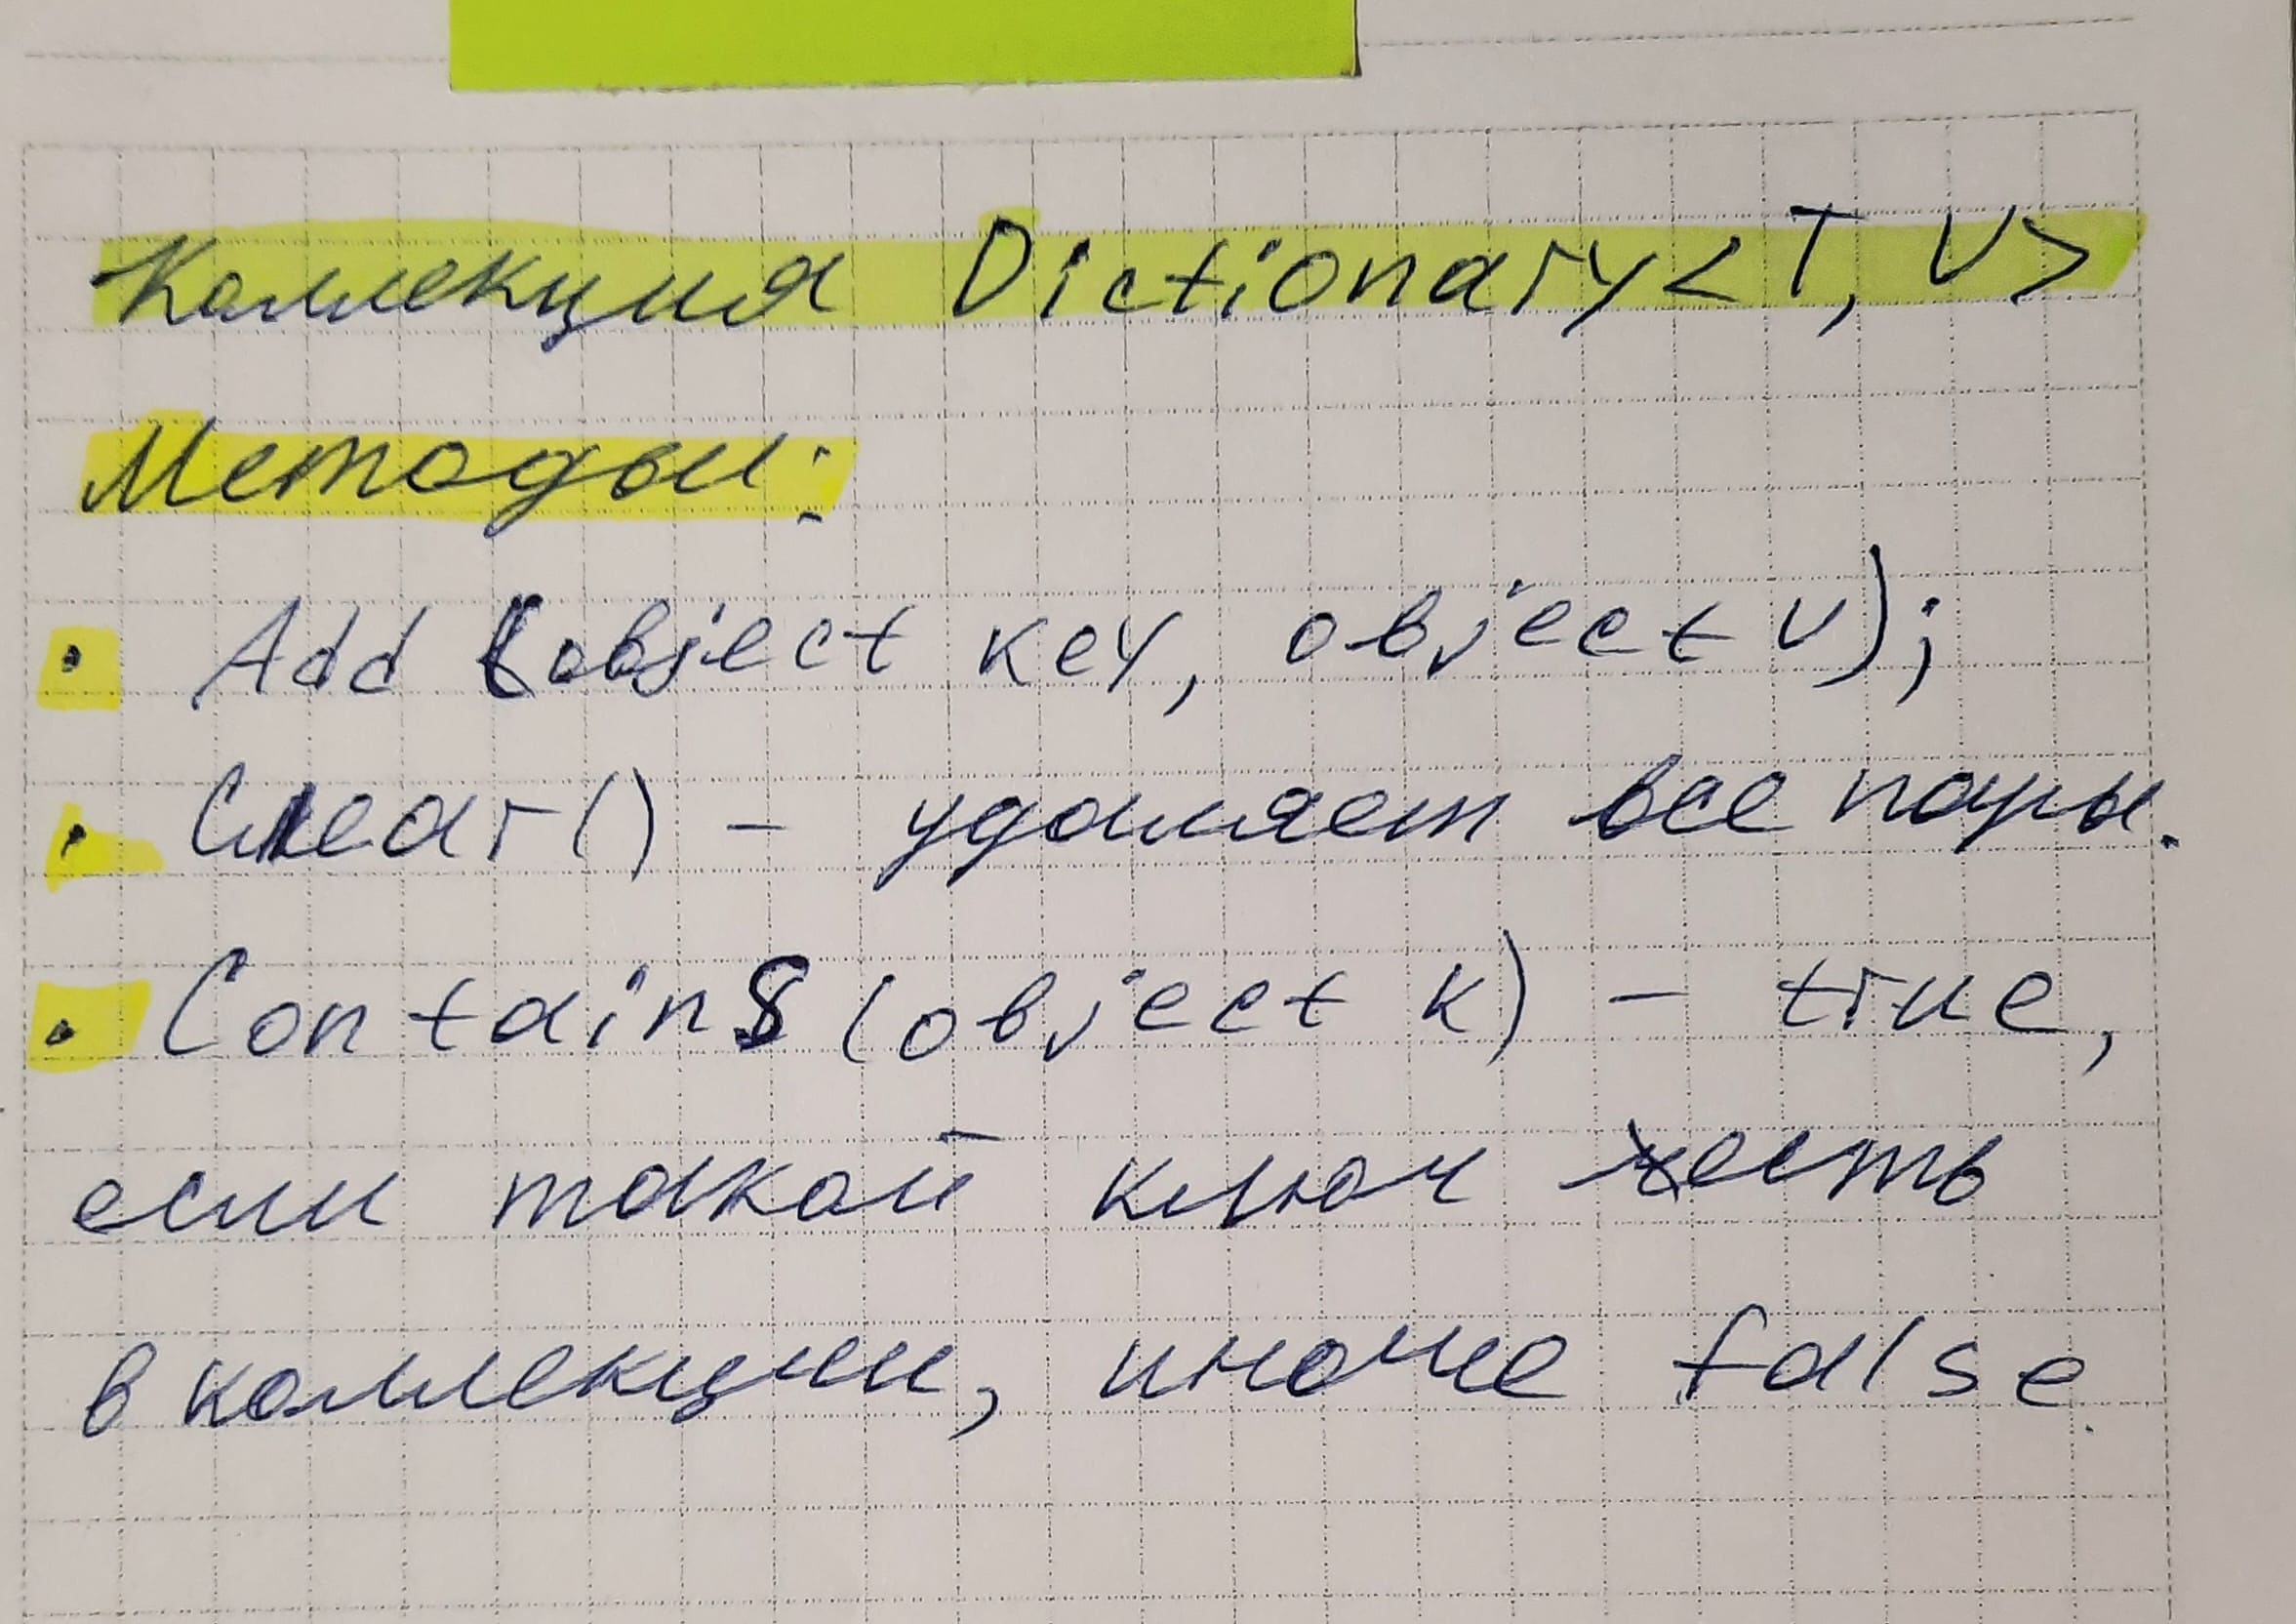 Коллекция Dictionary<T, V>
Методы:
• Add (object key, object v);
• Clear() - удаляет все пары.
• Contains (object k) - true,
если такой ключ есть
в коллекции, иначе false.